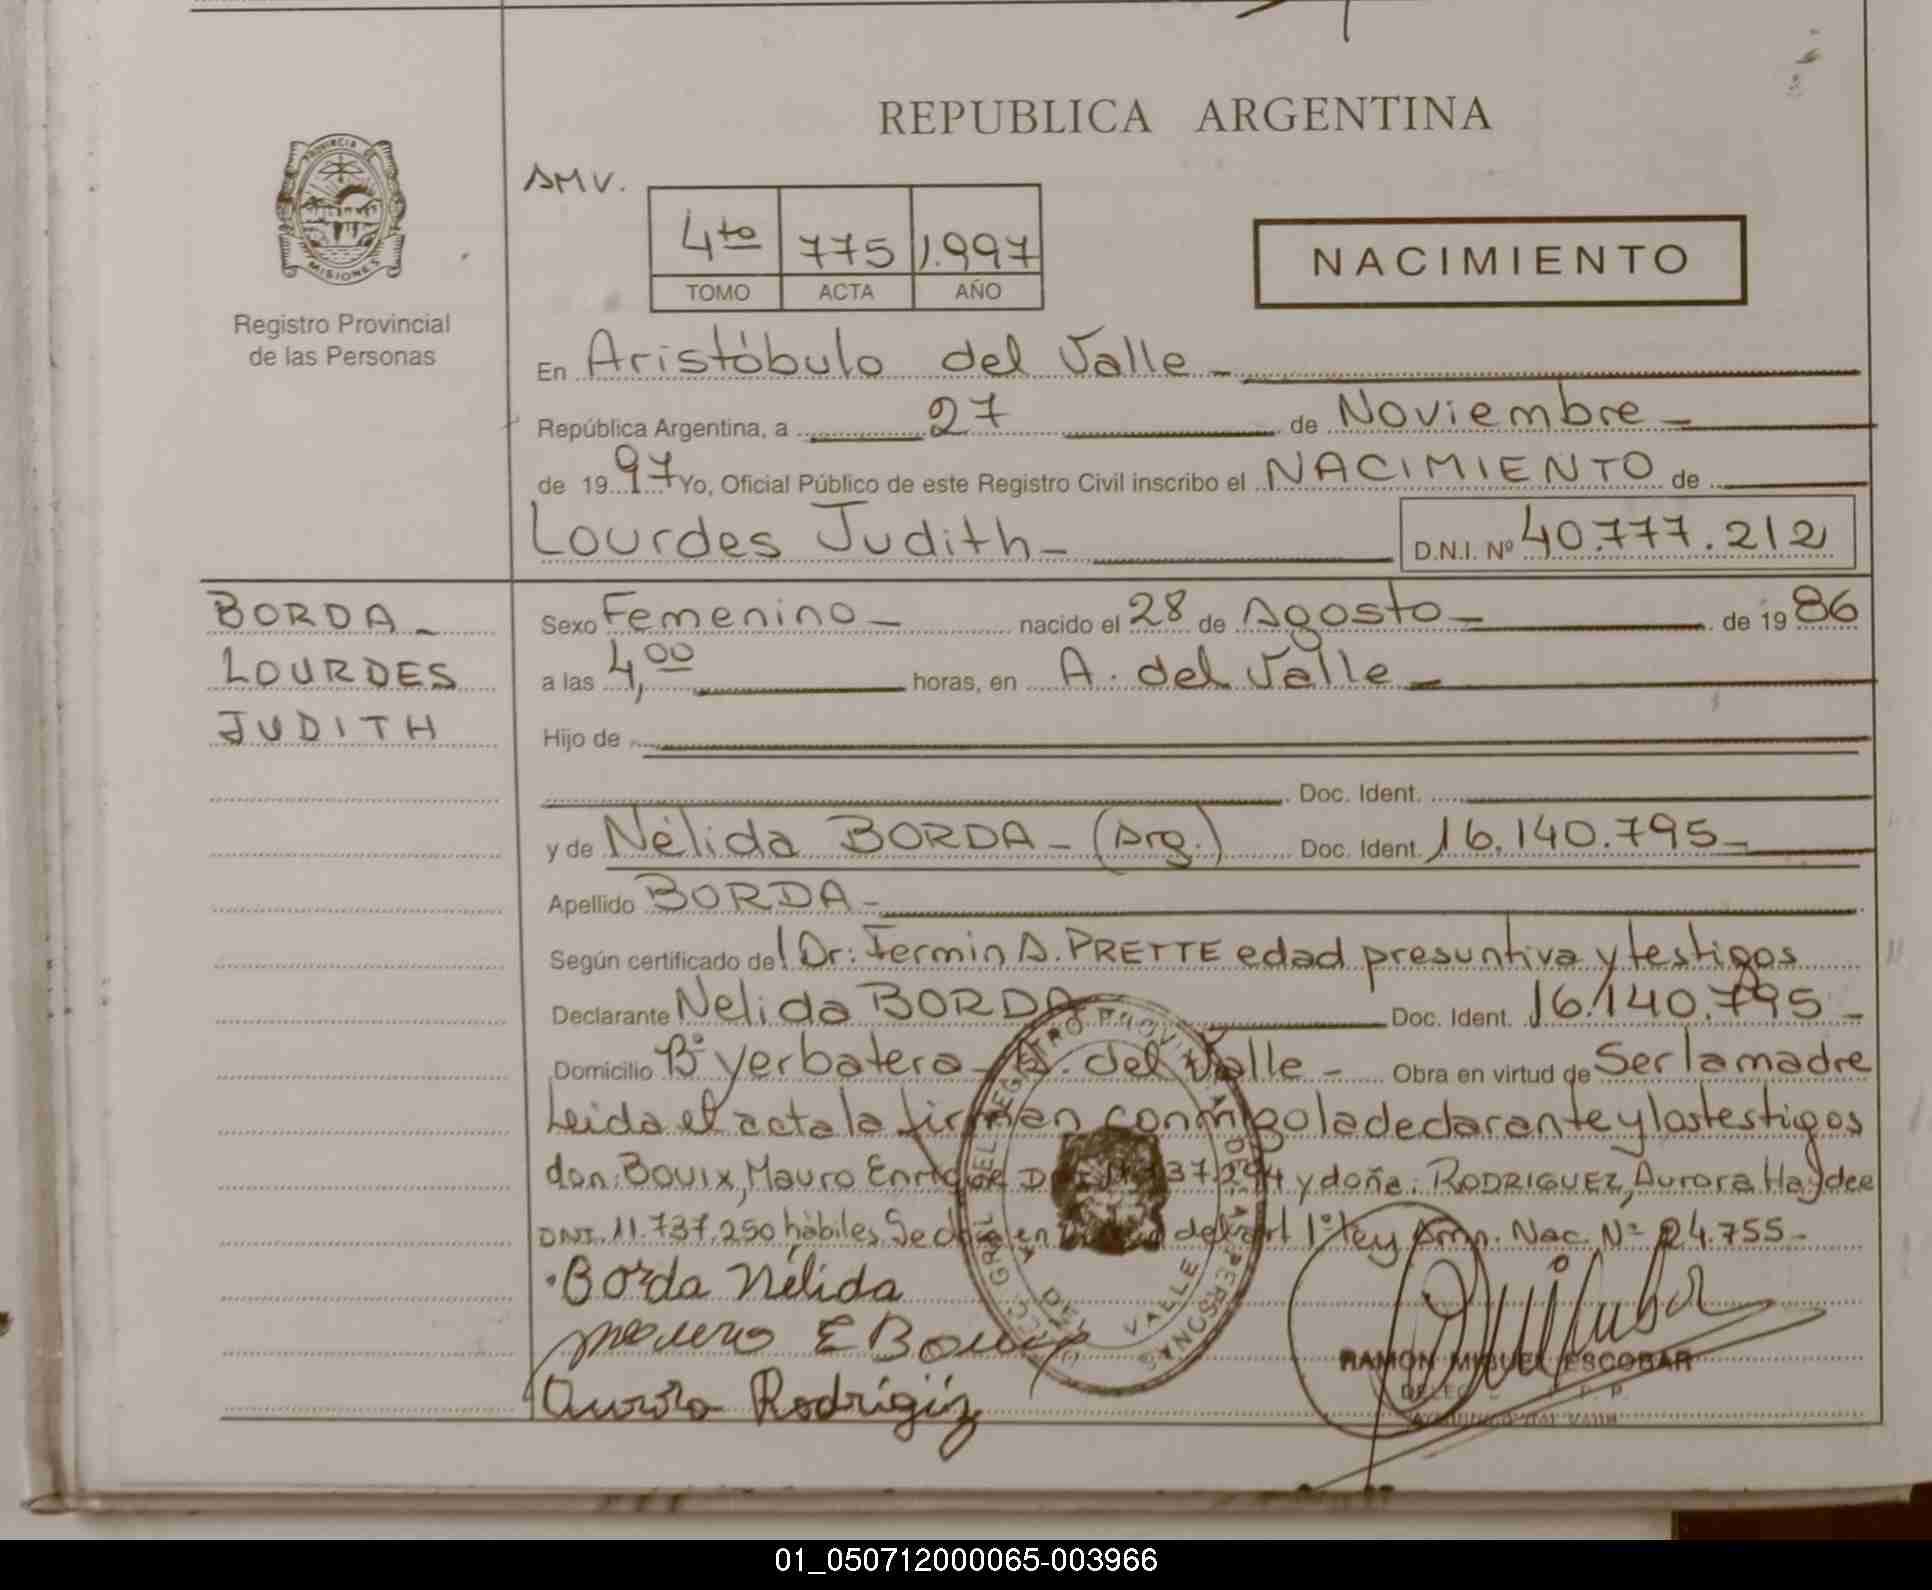 REPUBLICA ARGENTINA
PROVINCIA DE
MISIONES
Registro Provincial
de las Personas
AMV.
4to 775 1.997
TOMO ACTA AÑO
NACIMIENTO
En Aristóbulo del Valle -
República Argentina, a 27 de Noviembre -
de 1997 Yo, Oficial Público de este Registro Civil inscribo el NACIMIENTO de
Lourdes Judith - D.N.I. Nº 40.777.212
BORDA -
LOURDES
JUDITH
Sexo Femenino - nacido el 28 de Agosto - de 1986
a las 4,00 horas, en A. del Valle -
Hijo de
Doc. Ident.
y de Nélida BORDA - (Arg.) Doc. Ident. 16.140.795 -
Apellido BORDA -
Según certificado del Dr: Fermin A. PRETTE edad presuntiva y testigos
Declarante Nelida BORDA Doc. Ident. 16.140.795 -
Domicilio Bº Yerbatero - A. del Valle - Obra en virtud de Ser la madre
Leida el acta la firman conmigo la declarante y los testigos
don: BOUIX, Mauro Enrique y doña: RODRIGUEZ, Aurora Haydee
DNI. 11.737.250 hàbiles. del art 1º Ley Amn. Nac. Nº 24.755 -
Borda Nélida
Mauro E Bouix
Aurora Rodrigüz
RAMON MIGUEL ESCOBAR
01_050712000065-003966